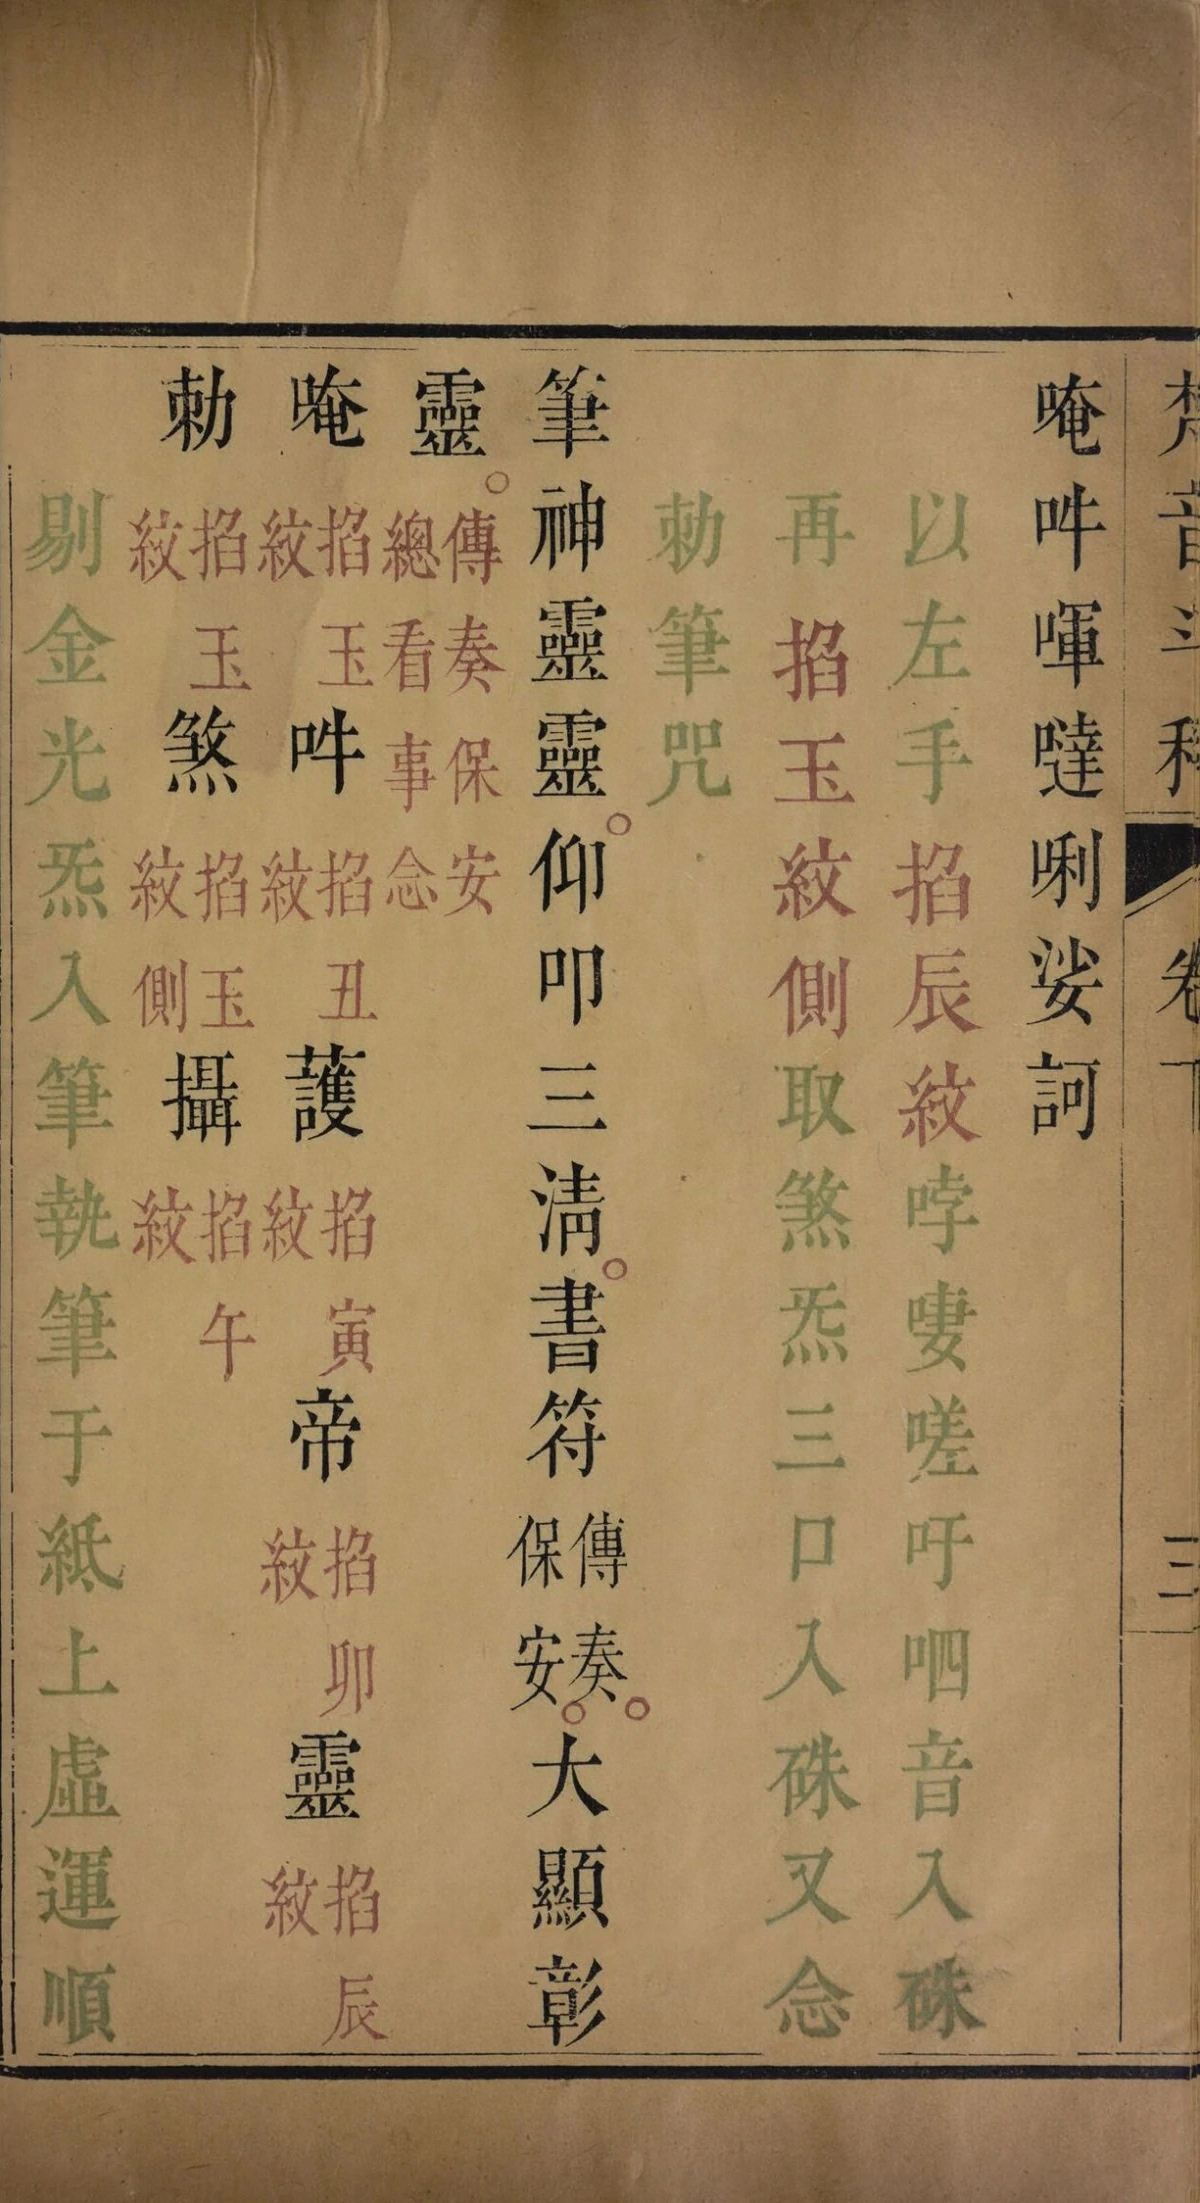 梵音斗科 卷下 三
唵吽㗲噠唎娑訶
以左手掐辰紋哱嘍嗟吁呬音入硃
再掐玉紋側取煞炁三口入硃又念
勅筆咒
筆神靈靈仰叩三清書符傳奏保安大顯彰
靈傳奏保安總看事念
唵掐玉紋吽掐丑紋護掐寅紋帝掐卯紋靈掐辰紋
勅掐玉紋煞掐玉側紋攝掐午紋
剔金光炁入筆執筆于紙上虛運順